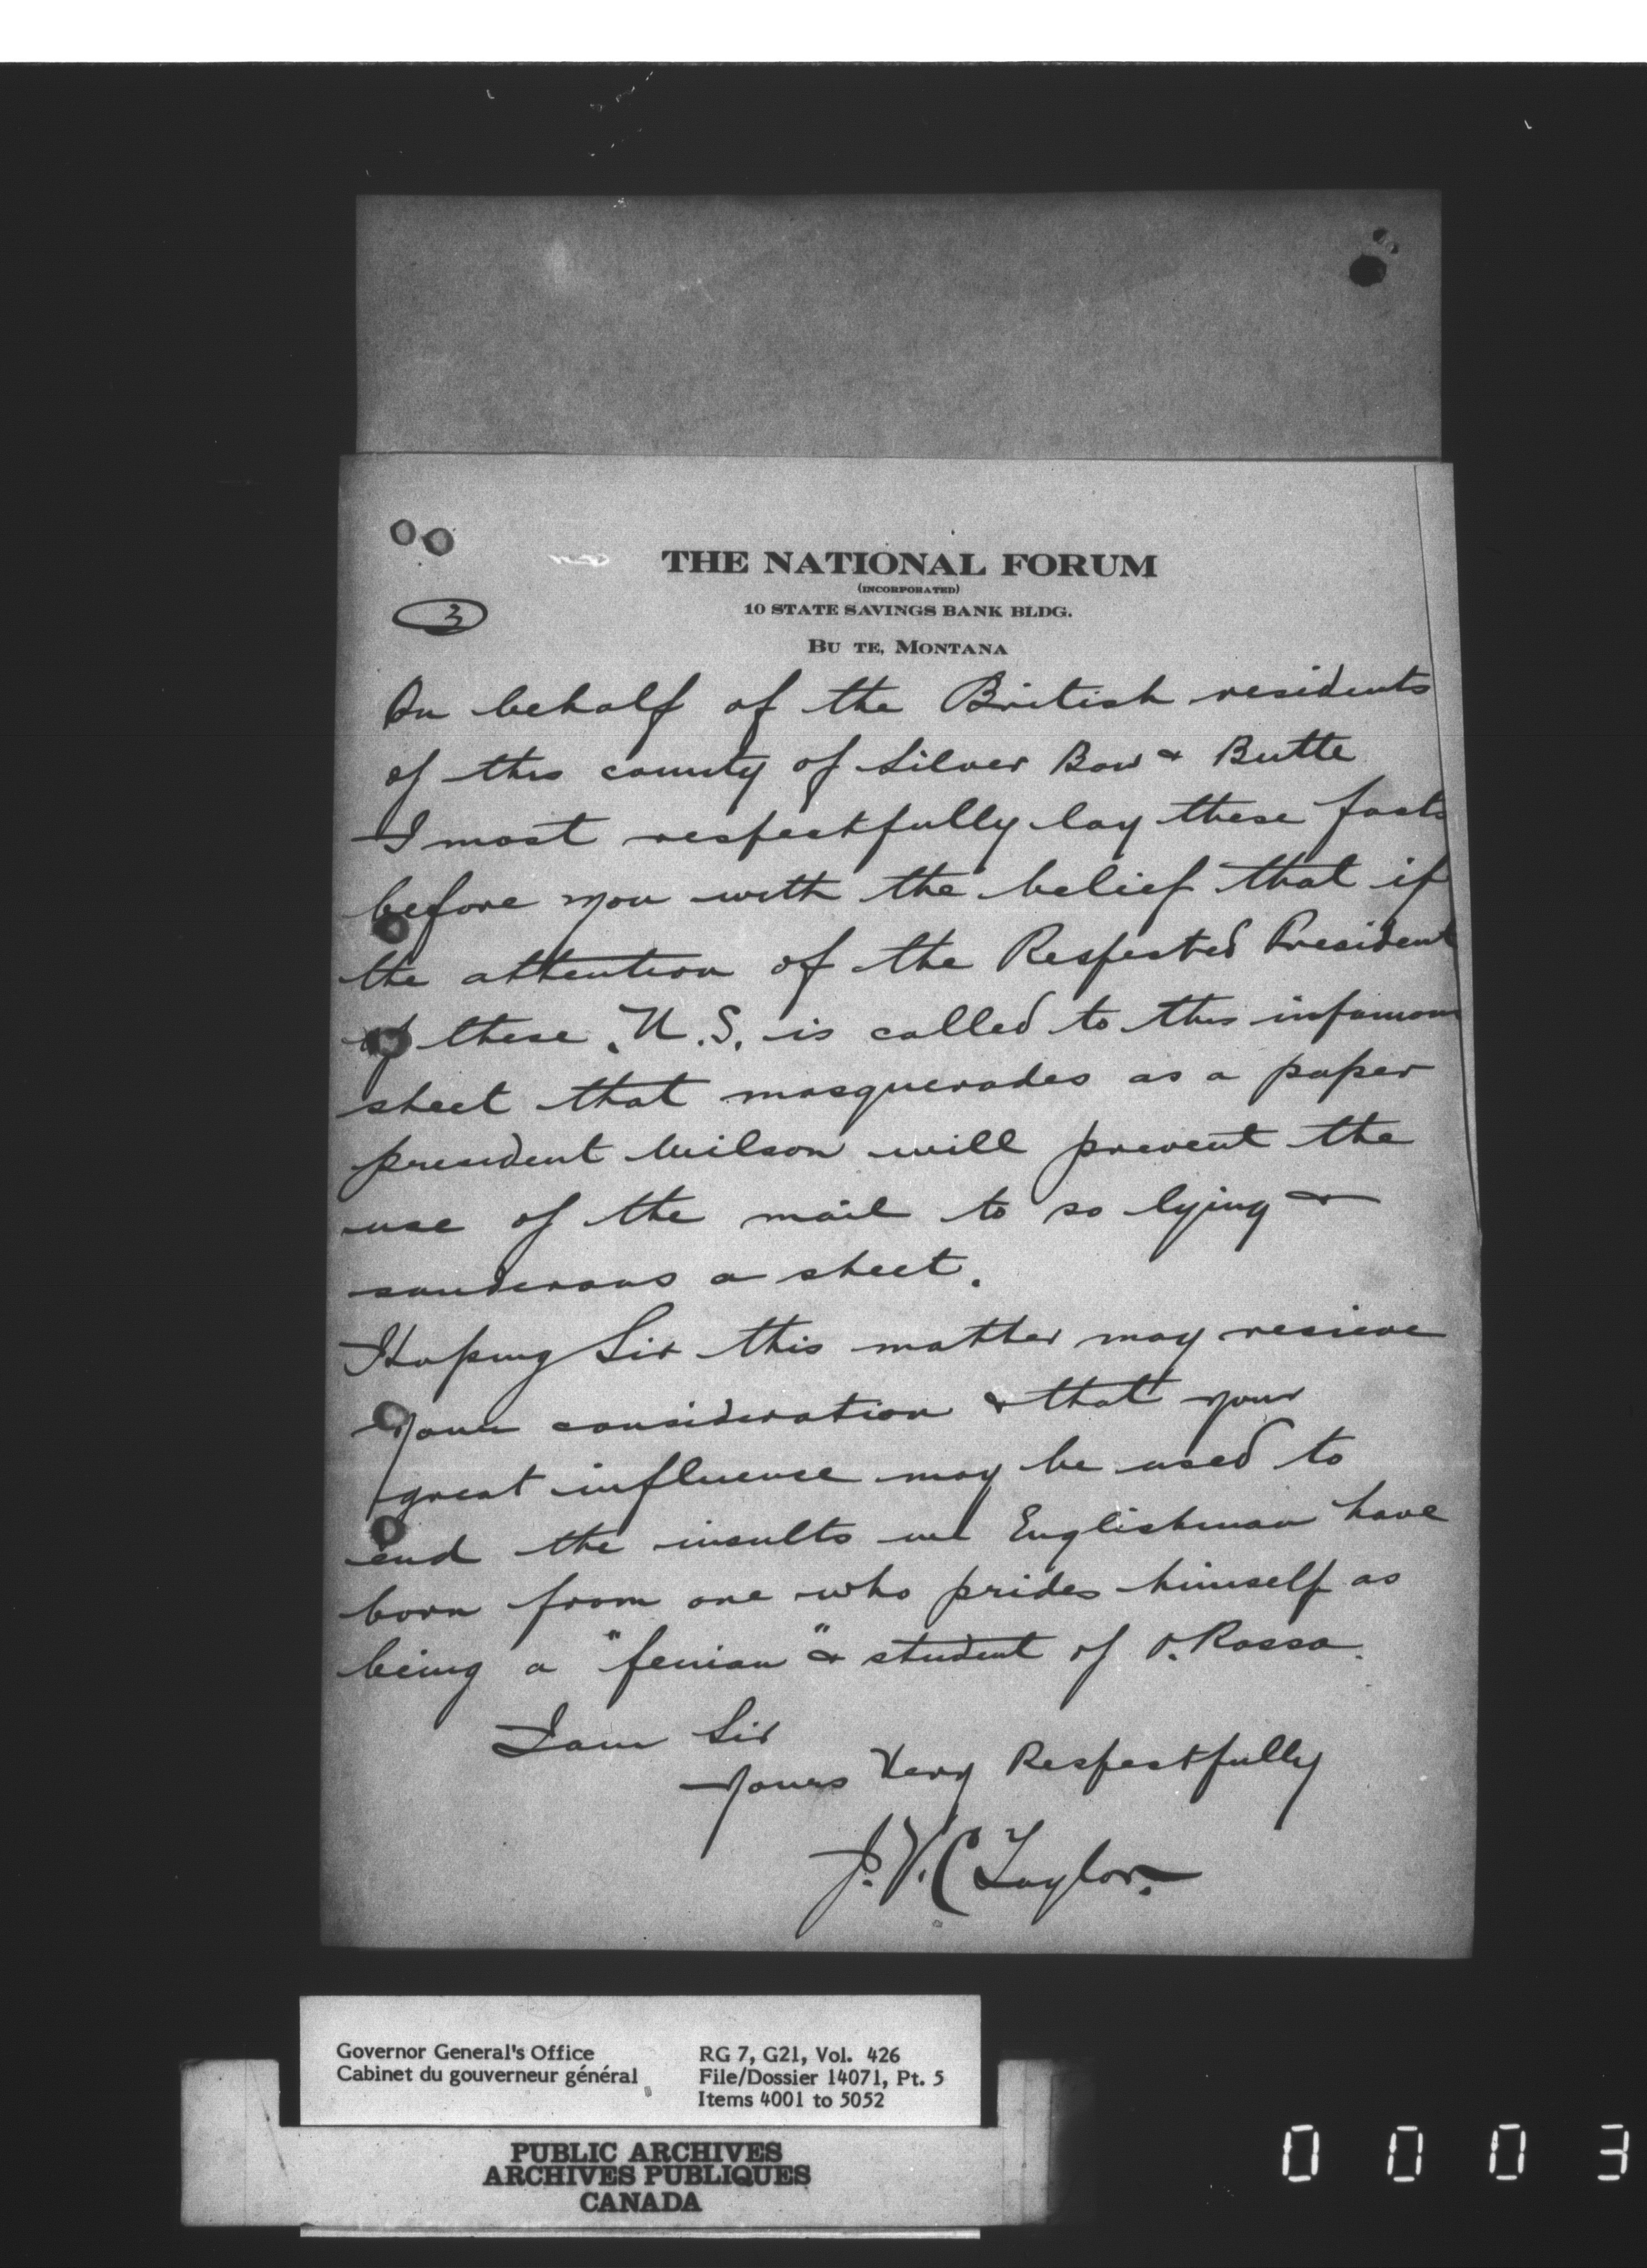 THE NATIONAL FORUM
(INCORPORATED)
10 STATE SAVINGS BANK BLDG.
BU TE, MONTANA
3
On behalf of the British residents
of this county of Silver Bow & Butte
I most respectfully lay these facts
before you with the belief that if
the attention of the Respected President
of these U.S. is called to this infamous
sheet that masquerades as a paper
president Wilson will prevent the
use of the mail to so lying &
sanderous a sheet.
Hoping Sir this matter may resieve
your consideration & that your
great influence may be used to
end the insults we Englishman have
born from one who prides himself as
being a "fenian" & student of O. Rossa.
I am Sir
Yours Very Respectfully
J. V. C Taylor.
Governor General's Office RG 7, G21, Vol. 426
Cabinet du gouverneur général File/Dossier 14071, Pt. 5
Items 4001 to 5052
PUBLIC ARCHIVES
ARCHIVES PUBLIQUES
CANADA
0 0 0 3